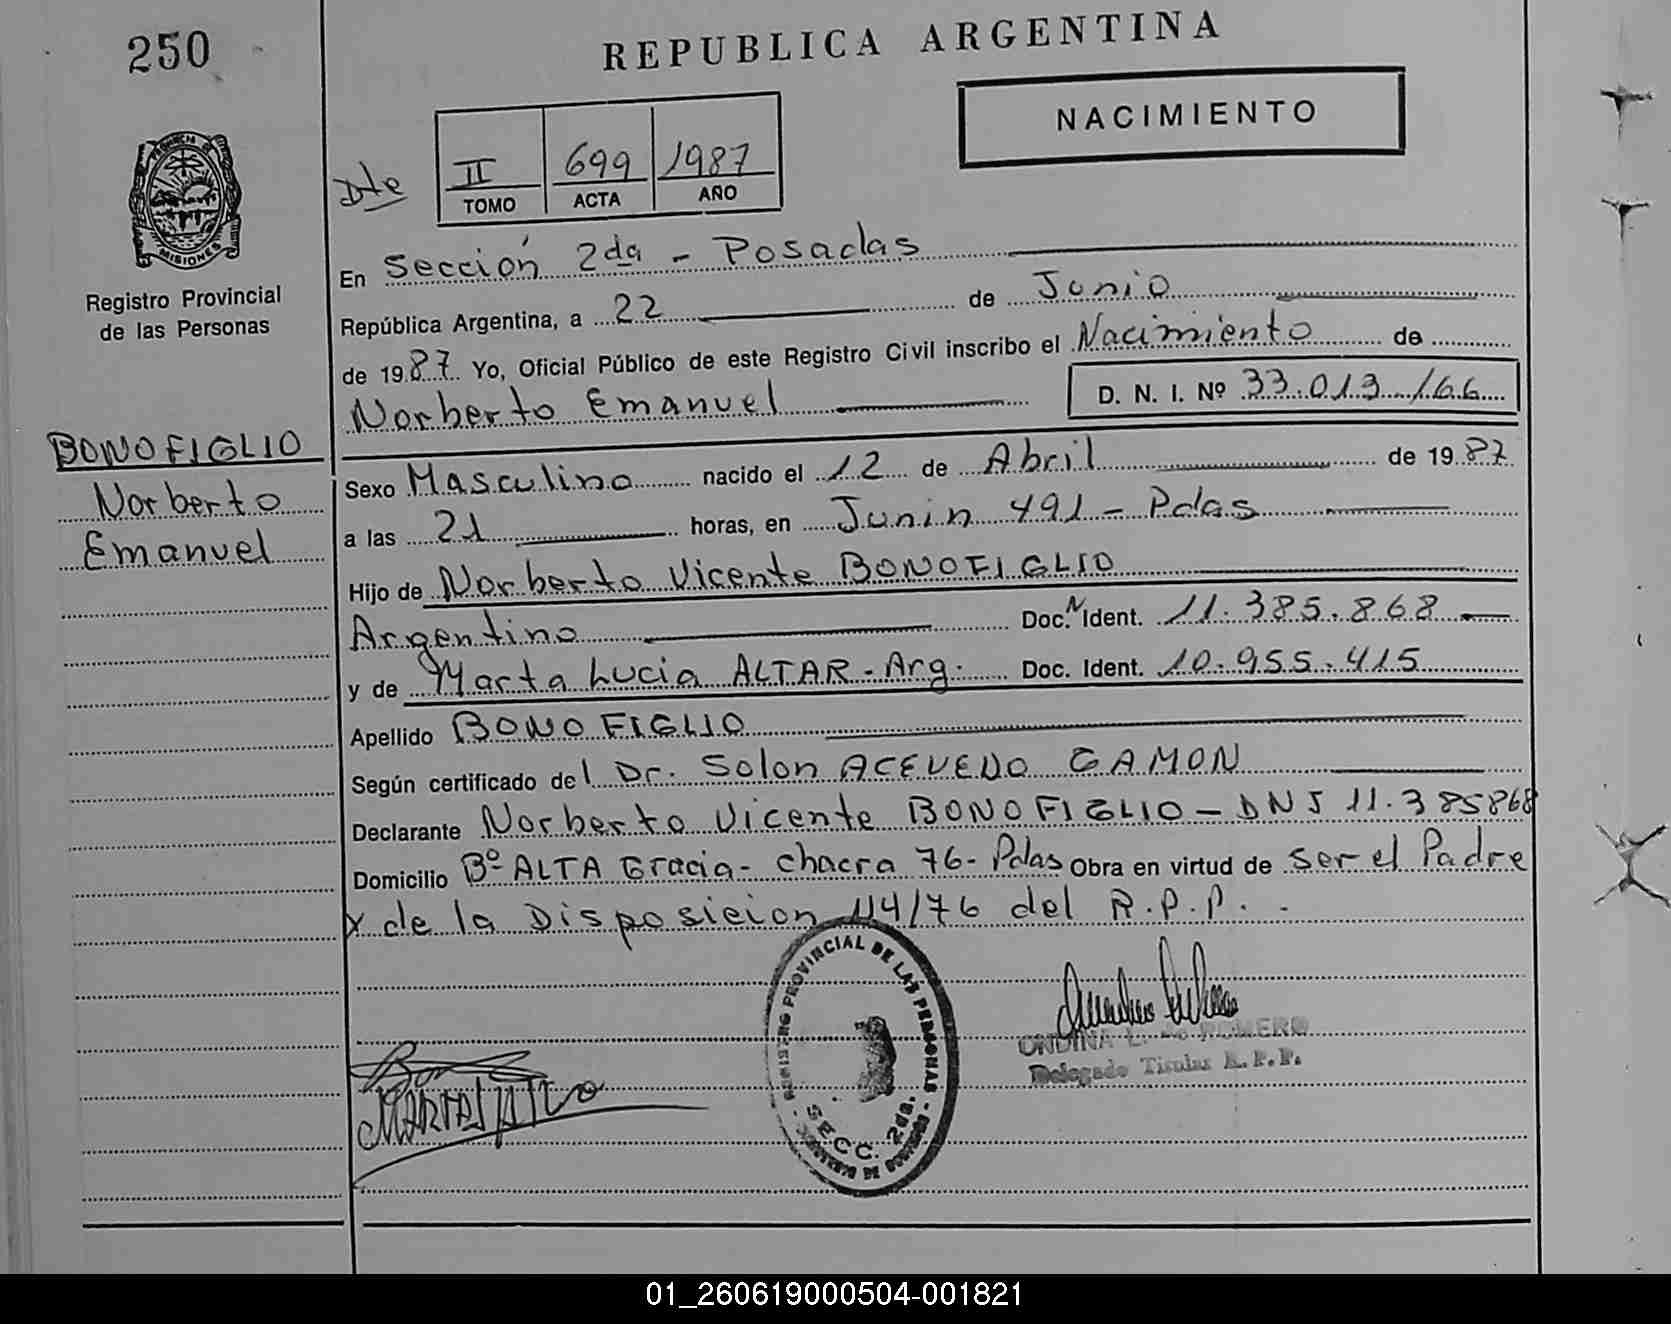 250
REPUBLICA ARGENTINA
NACIMIENTO
Dte
II 699 1987
TOMO ACTA AÑO
PROVINCIA DE MISIONES
Registro Provincial
de las Personas
En Sección 2da - Posadas
República Argentina, a 22 de Junio
de 1987 Yo, Oficial Público de este Registro Civil inscribo el Nacimiento de
Norberto Emanuel D. N. I. Nº 33.013.166
BONOFIGLIO
Norberto
Emanuel
Sexo Masculino nacido el 12 de Abril de 1987
a las 21 horas, en Junin 491 - Pdas
Hijo de Norberto Vicente BONOFIGLIO
Argentino Doc. Ident. 11.385.868
y de Marta Lucia ALTAR - Arg. Doc. Ident. 10.955.415
Apellido BONOFIGLIO
Según certificado del Dr. Solon ACEVEDO GAMON
Declarante Norberto Vicente BONOFIGLIO - DNI 11.385868
Domicilio Bº ALTA Gracia - chacra 76 - Pdas Obra en virtud de ser el Padre
y de la Disposicion 114/76 del R.P.P. -
REGISTRO PROVINCIAL DE LAS PERSONAS
SECC. 2da.
ONDINA ROMERO
Delegado Titular R.P.P.
01_260619000504-001821